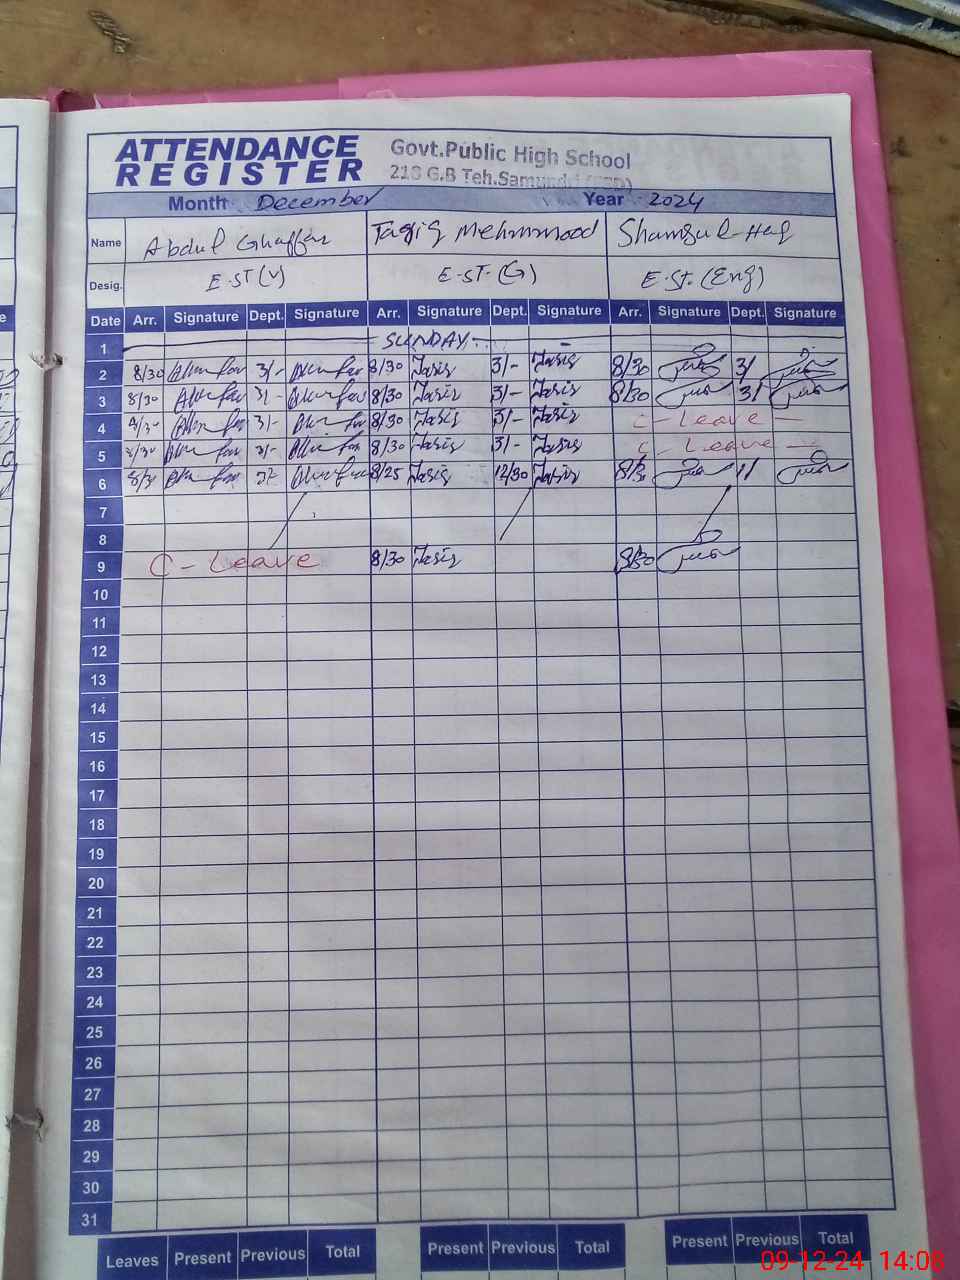 ATTENDANCE
REGISTER
Govt.Public High School
218 G.B Teh.Samundri (FSD)
Month December Year 2024
Name Abdul Ghaffar Tariq Mehmmood Shamsul-Haq
Desig. E-ST(V) E-ST-(G) E-St.(Eng)
Date Arr. Signature Dept. Signature Arr. Signature Dept. Signature Arr. Signature Dept. Signature
1 SUNDAY
2 8/30 3/- 8/30 Tariq 3/- Tariq 8/30 3/
3 8/30 3/- 8/30 Tariq 3/- Tariq 8/30 3/
4 3/- 8/30 Tariq 3/- Tariq C-Leave
5 3/- 8/30 Tariq 3/- Tariq C-Leave
6 8/25 Tariq 12/30 Tariq
7
8
9 C-Leave 8/30 Tariq 8/30
10
11
12
13
14
15
16
17
18
19
20
21
22
23
24
25
26
27
28
29
30
31
Leaves Present Previous Total Present Previous Total Present Previous Total
09-12-24 14:08